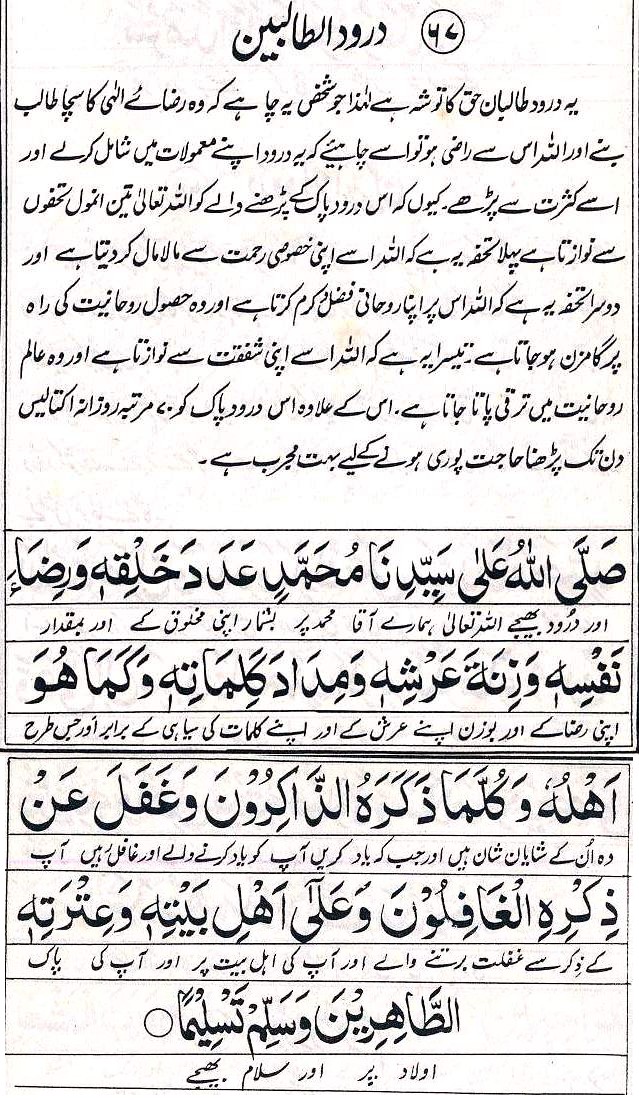 ۶۷ درود الطالبین
یہ درود طالبان حق کا توشہ ہے لہٰذا جو شخص یہ چاہے کہ وہ رضائے الٰہی کا سچا طالب
بنے اور اللہ اس سے راضی ہو تو اسے چاہیئے کہ یہ درود اپنے معمولات میں شامل کرلے اور
اسے کثرت سے پڑھے۔ کیوں کہ اس درود پاک کے پڑھنے والے کو اللہ تعالیٰ تین انمول تحفوں
سے نوازتا ہے پہلا تحفہ یہ ہے کہ اللہ اسے اپنی خصوصی رحمت سے مالا مال کر دیتا ہے اور
دوسرا تحفہ یہ ہے کہ اللہ اس پر اپنا روحانی فضل و کرم کرتا ہے اور وہ حصول روحانیت کی راہ
پر گامزن ہو جاتا ہے۔ تیسرا یہ ہے کہ اللہ اسے اپنی شفقت سے نوازتا ہے اور وہ عالم
روحانیت میں ترقی پاتا جاتا ہے۔ اس کے علاوہ اس درود پاک کو ۷۰ مرتبہ روزانہ اکتالیس
دن تک پڑھنا حاجت پوری ہونے کے لیے بہت مجرب ہے۔
صَلَّی اللّٰہُ عَلٰی سَیِّدِنَا مُحَمَّدٍ عَدَدَ خَلْقِہٖ وَرِضَآءِ
اور درُود بھیجے اللہ تعالیٰ ہمارے آقا محمد پر بشمار اپنی مخلوق کے اور بمقدار
نَفْسِہٖ وَزِنَۃَ عَرْشِہٖ وَمِدَادَ کَلِمَاتِہٖ وَکَمَا ھُوَ
اپنی رضا کے اور بوزن اپنے عرش کے اور اپنے کلمات کی سیاہی کے برابر اور جس طرح
اَھْلُہٗ وَکُلَّمَا ذَکَرَہُ الذَّاکِرُوْنَ وَغَفَلَ عَنْ
وہ اُن کے شایان شان ہیں اور جب کہ یاد کریں آپ کو یاد کرنے والے اور غافل ہیں آپ
ذِکْرِہِ الْغَافِلُوْنَ وَعَلٰٓی اَھْلِ بَیْتِہٖ وَعِتْرَتِہٖ
کے ذِکر سے غفلت برتنے والے اور آپ کی اہل بیت پر اور آپ کی پاک
الطَّاھِرِیْنَ وَسَلِّمْ تَسْلِیْمًا ○
اولاد پر اور سلام بھیجے